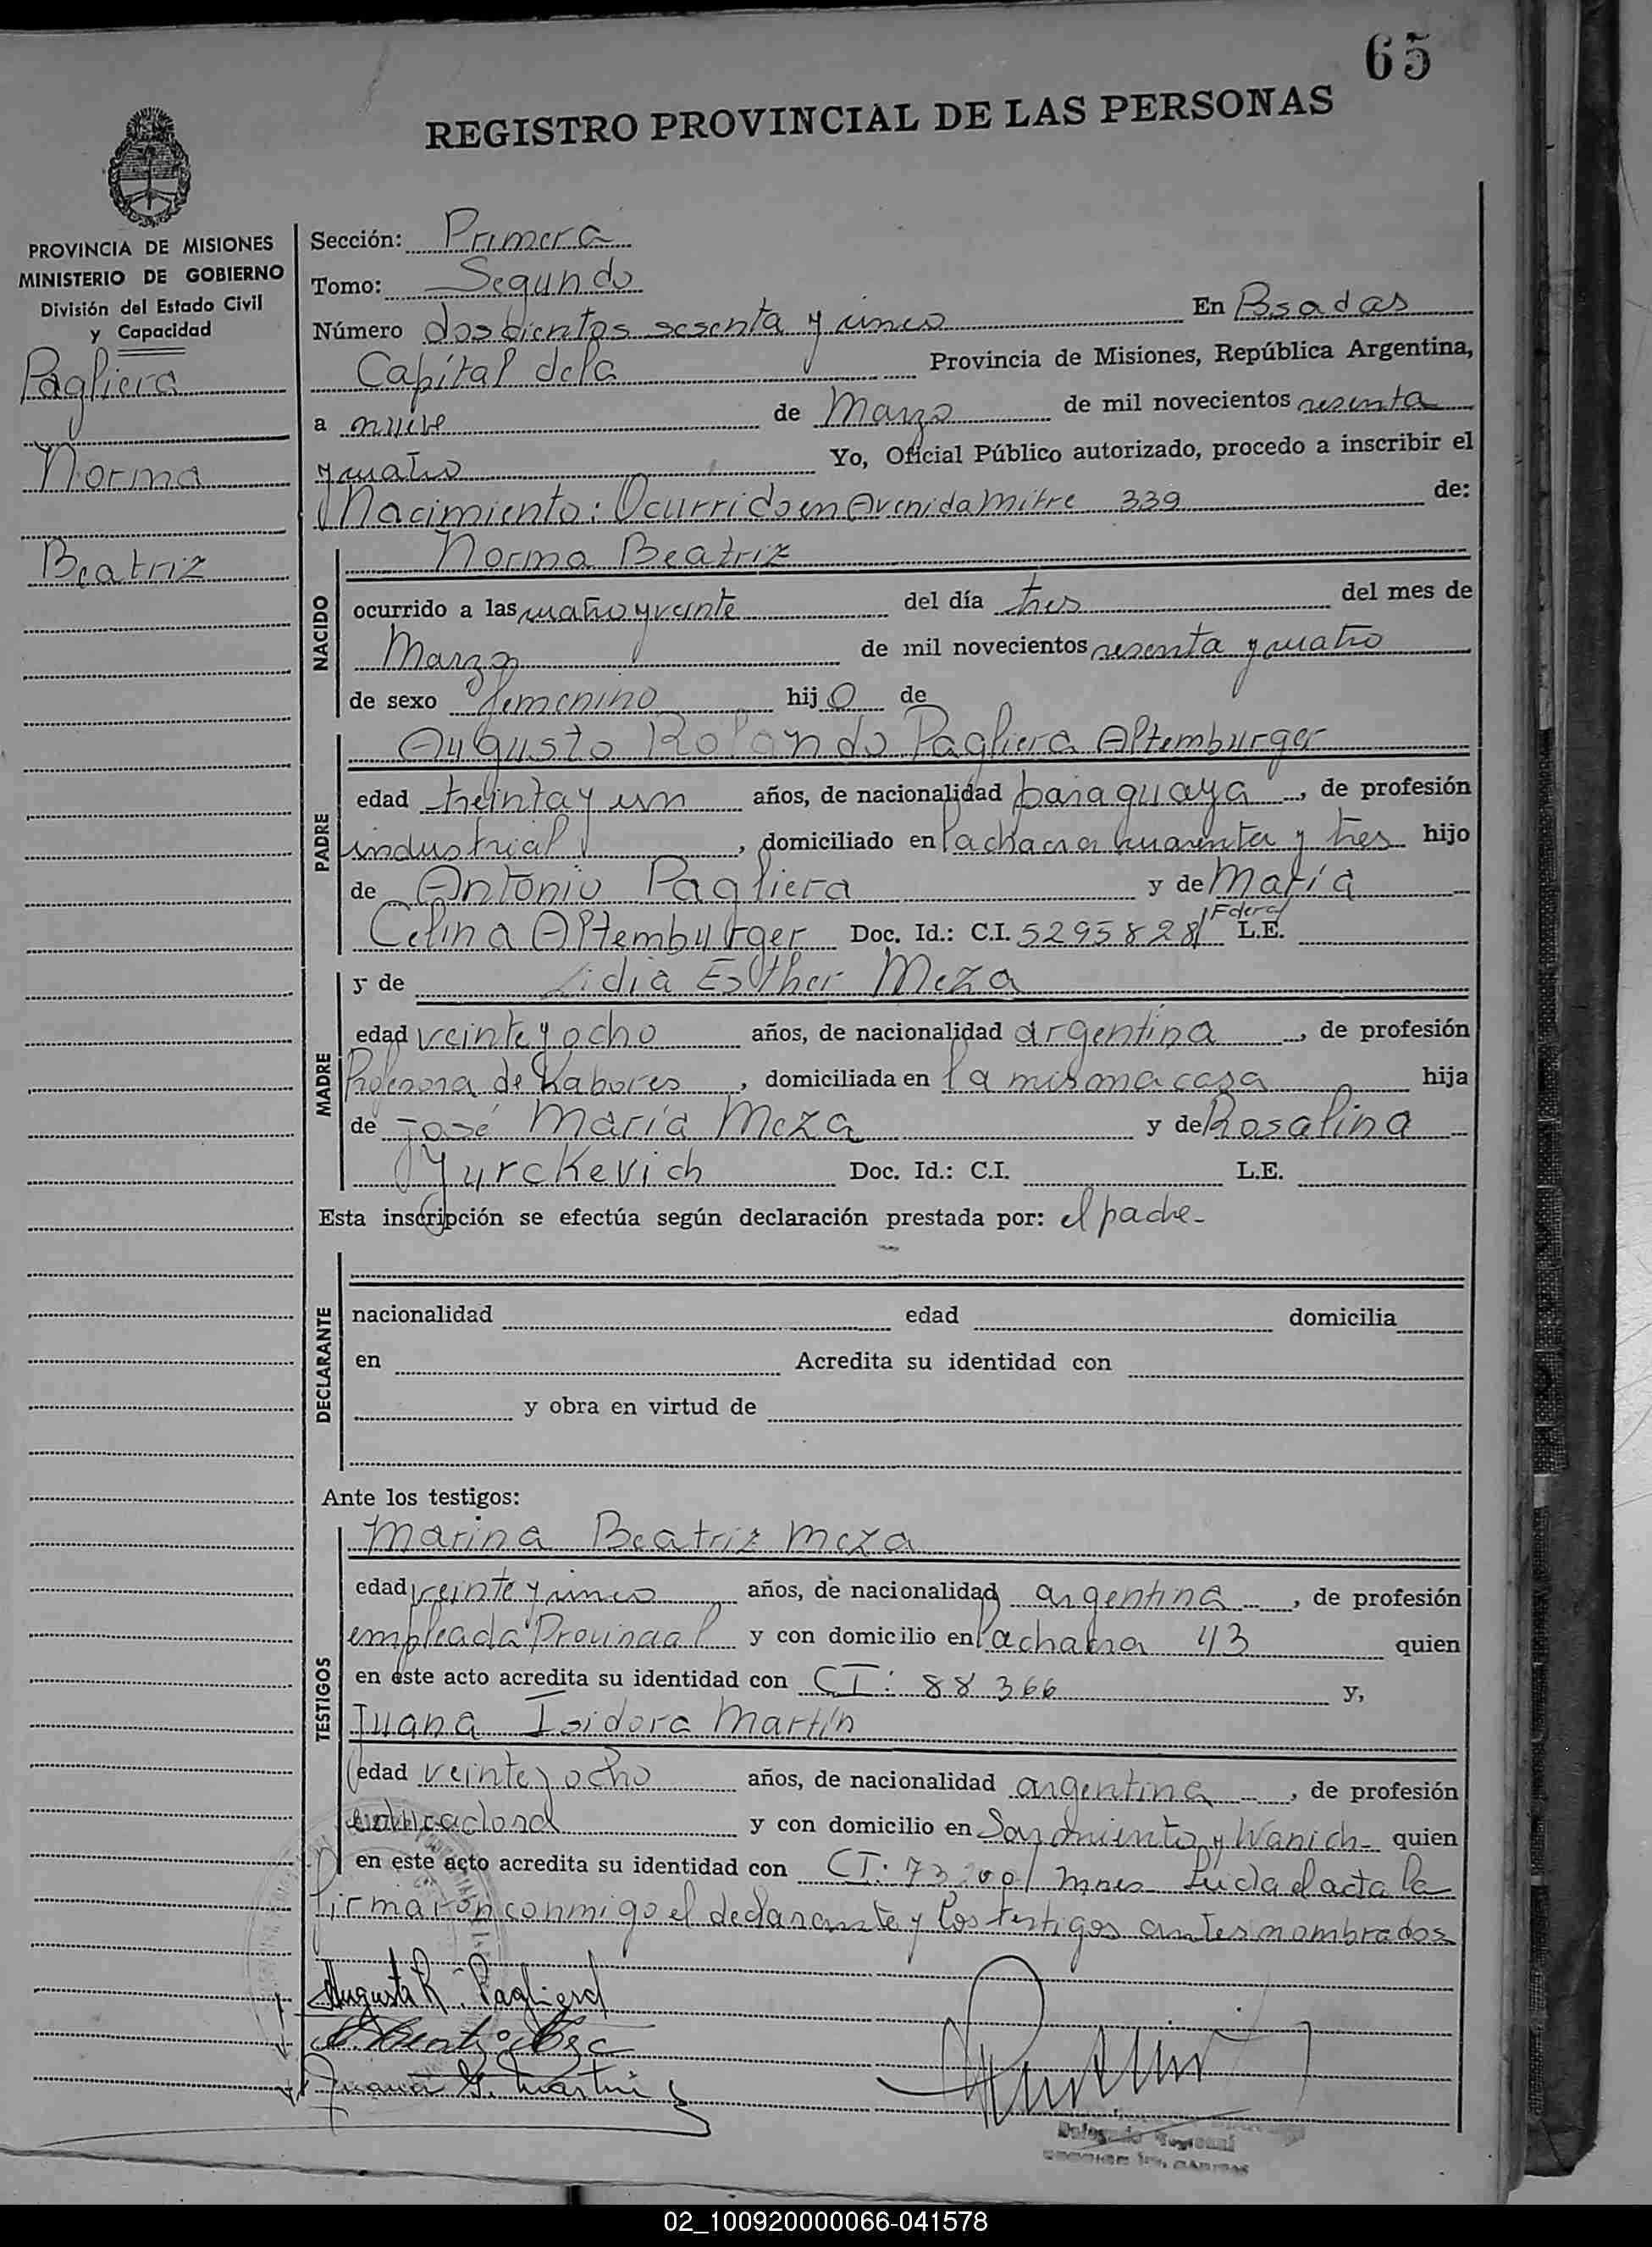 65
REGISTRO PROVINCIAL DE LAS PERSONAS
PROVINCIA DE MISIONES
MINISTERIO DE GOBIERNO
División del Estado Civil
y Capacidad
Pagliera
Norma
Beatriz
Sección: Primera
Tomo: Segundo
Número doscientos sesenta y cinco En Posadas
Capital dela Provincia de Misiones, República Argentina,
a nueve de Marzo de mil novecientos sesenta
y cuatro Yo, Oficial Público autorizado, procedo a inscribir el
Nacimiento: Ocurrido en Avenida Mitre 339 de:
NACIDO
Norma Beatriz
ocurrido a las cuatro y veinte del día tres del mes de
Marzo de mil novecientos sesenta y cuatro
de sexo femenino hij o de
PADRE
Augusto Rolando Pagliera Altemburger
edad treinta y un años, de nacionalidad paraguaya, de profesión
industrial, domiciliado en la chacra cuarenta y tres hijo
de Antonio Pagliera y de María
Celina Altemburger Doc. Id.: C.I. 5295828 L.E.
MADRE
y de Lidia Esther Meza
edad veinte y ocho años, de nacionalidad argentina, de profesión
Profesora de Labores, domiciliada en la misma casa hija
de José María Meza y de Rosalina
Yurckevich Doc. Id.: C.I. L.E.
Esta inscripción se efectúa según declaración prestada por: el padre-
DECLARANTE
nacionalidad edad domicilia
en Acredita su identidad con
y obra en virtud de
Ante los testigos:
TESTIGOS
Marina Beatriz Meza
edad veinte y cinco años, de nacionalidad argentina, de profesión
empleada Provincial y con domicilio en la chacra 43 quien
en este acto acredita su identidad con CI: 88366 y,
Juana Isidora Martín
edad veinte y ocho años, de nacionalidad argentina, de profesión
educadora y con domicilio en Sarmiento y quien
en este acto acredita su identidad con CI: 73.001 Mnes Leida el acta la
firmaron conmigo el declarante y los testigos antes nombrados
Augusto R. Pagliera
Juana I. Martin
02_100920000066-041578